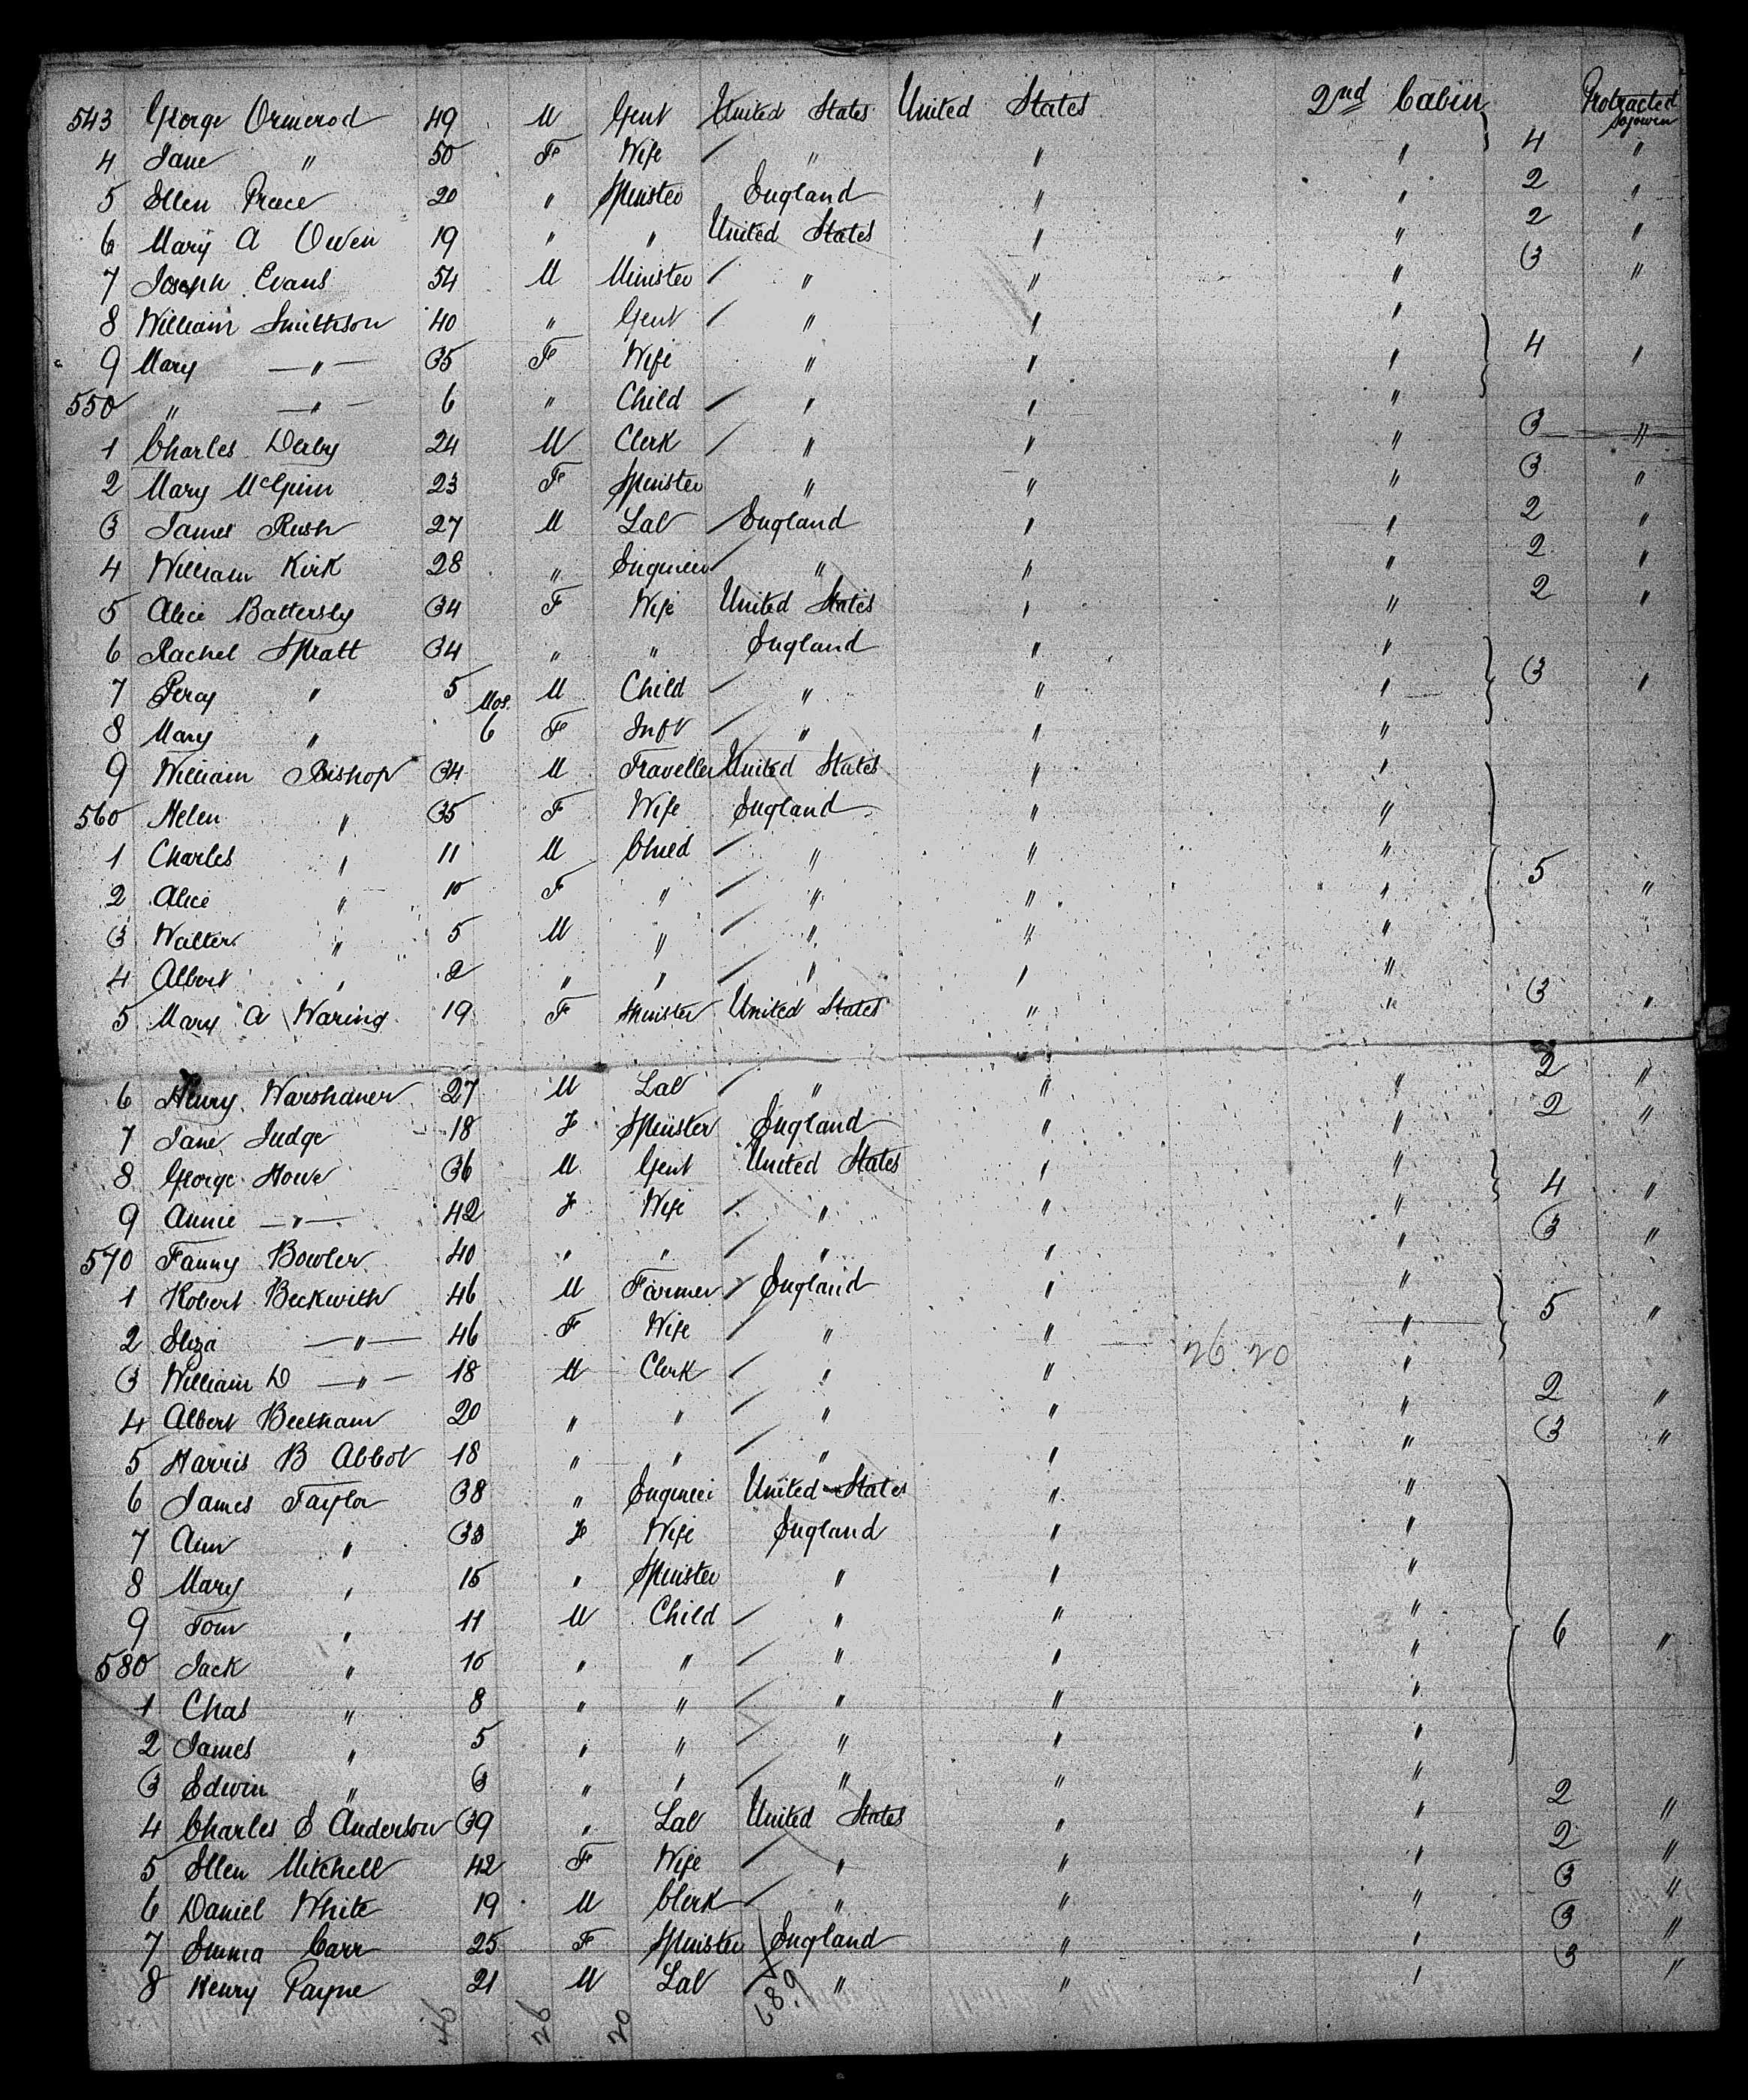 543 George Ormerod 49 M Gent United States United States 2nd Cabin Protracted sojourn
4 Jane " 50 F Wife " " " 4 "
5 Ellen Preece 20 " Spinster England " " 2 "
6 Mary A Owen 19 " " United States " " 2 "
7 Joseph Evans 54 M Minister " " " 3 "
8 William Smithson 40 " Gent " " "
9 Mary " 35 F Wife " " " 4 "
550 " " 6 " Child " " "
1 Charles Derby 24 M Clerk " " " 3 "
2 Mary McGinn 23 F Spinster " " " 3 "
3 James Rush 27 M Lab England " " 2 "
4 William Kirk 28 " Engineer " " " 2 "
5 Alice Battersby 34 F Wife United States " " 2 "
6 Rachel Spratt 34 " " England " "
7 Percy " 5 M Child " " " 3 "
8 Mary " Mos. 6 F Inft " " "
9 William Bishop 34 M Traveller United States " "
560 Helen " 35 F Wife England " "
1 Charles " 11 M Child " " "
2 Alice " 10 F " " " " 5 "
3 Walter " 5 M " " " "
4 Albert " 2 " " " " "
5 Mary A Waring 19 F Spinster United States " " 3 "
6 Henry Warshauer 27 M Lab " " " 2 "
7 Jane Judge 18 F Spinster England " " 2 "
8 George Howe 36 M Gent United States " "
9 Annie " 42 F Wife " " " 4 "
570 Fanny Bowler 40 " " " " " 3 "
1 Robert Beckwith 46 M Farmer England " "
2 Eliza " 46 F Wife " " " 5 "
26 20
3 William D " 18 M Clerk " " "
4 Albert Beetham 20 " " " " " 2 "
5 Harris B Abbot 18 " " " " " 3 "
6 James Taylor 38 " Engineer United States " "
7 Ann " 33 F Wife England " "
8 Mary " 15 " Spinster " " "
9 Tom " 11 M Child " " " 6 "
580 Jack " 10 " " " " "
1 Chas " 8 " " " " "
2 James " 5 " " " " "
3 Edwin " 3 " " " " "
4 Charles E Anderson 39 " Lab United States " " 2 "
5 Ellen Mitchell 42 F Wife " " " 2 "
6 Daniel White 19 M Clerk " " " 3 "
7 Emma Carr 25 F Spinster England " " 3 "
8 Henry Payne 21 M Lab " " " 3 "
46 26 20